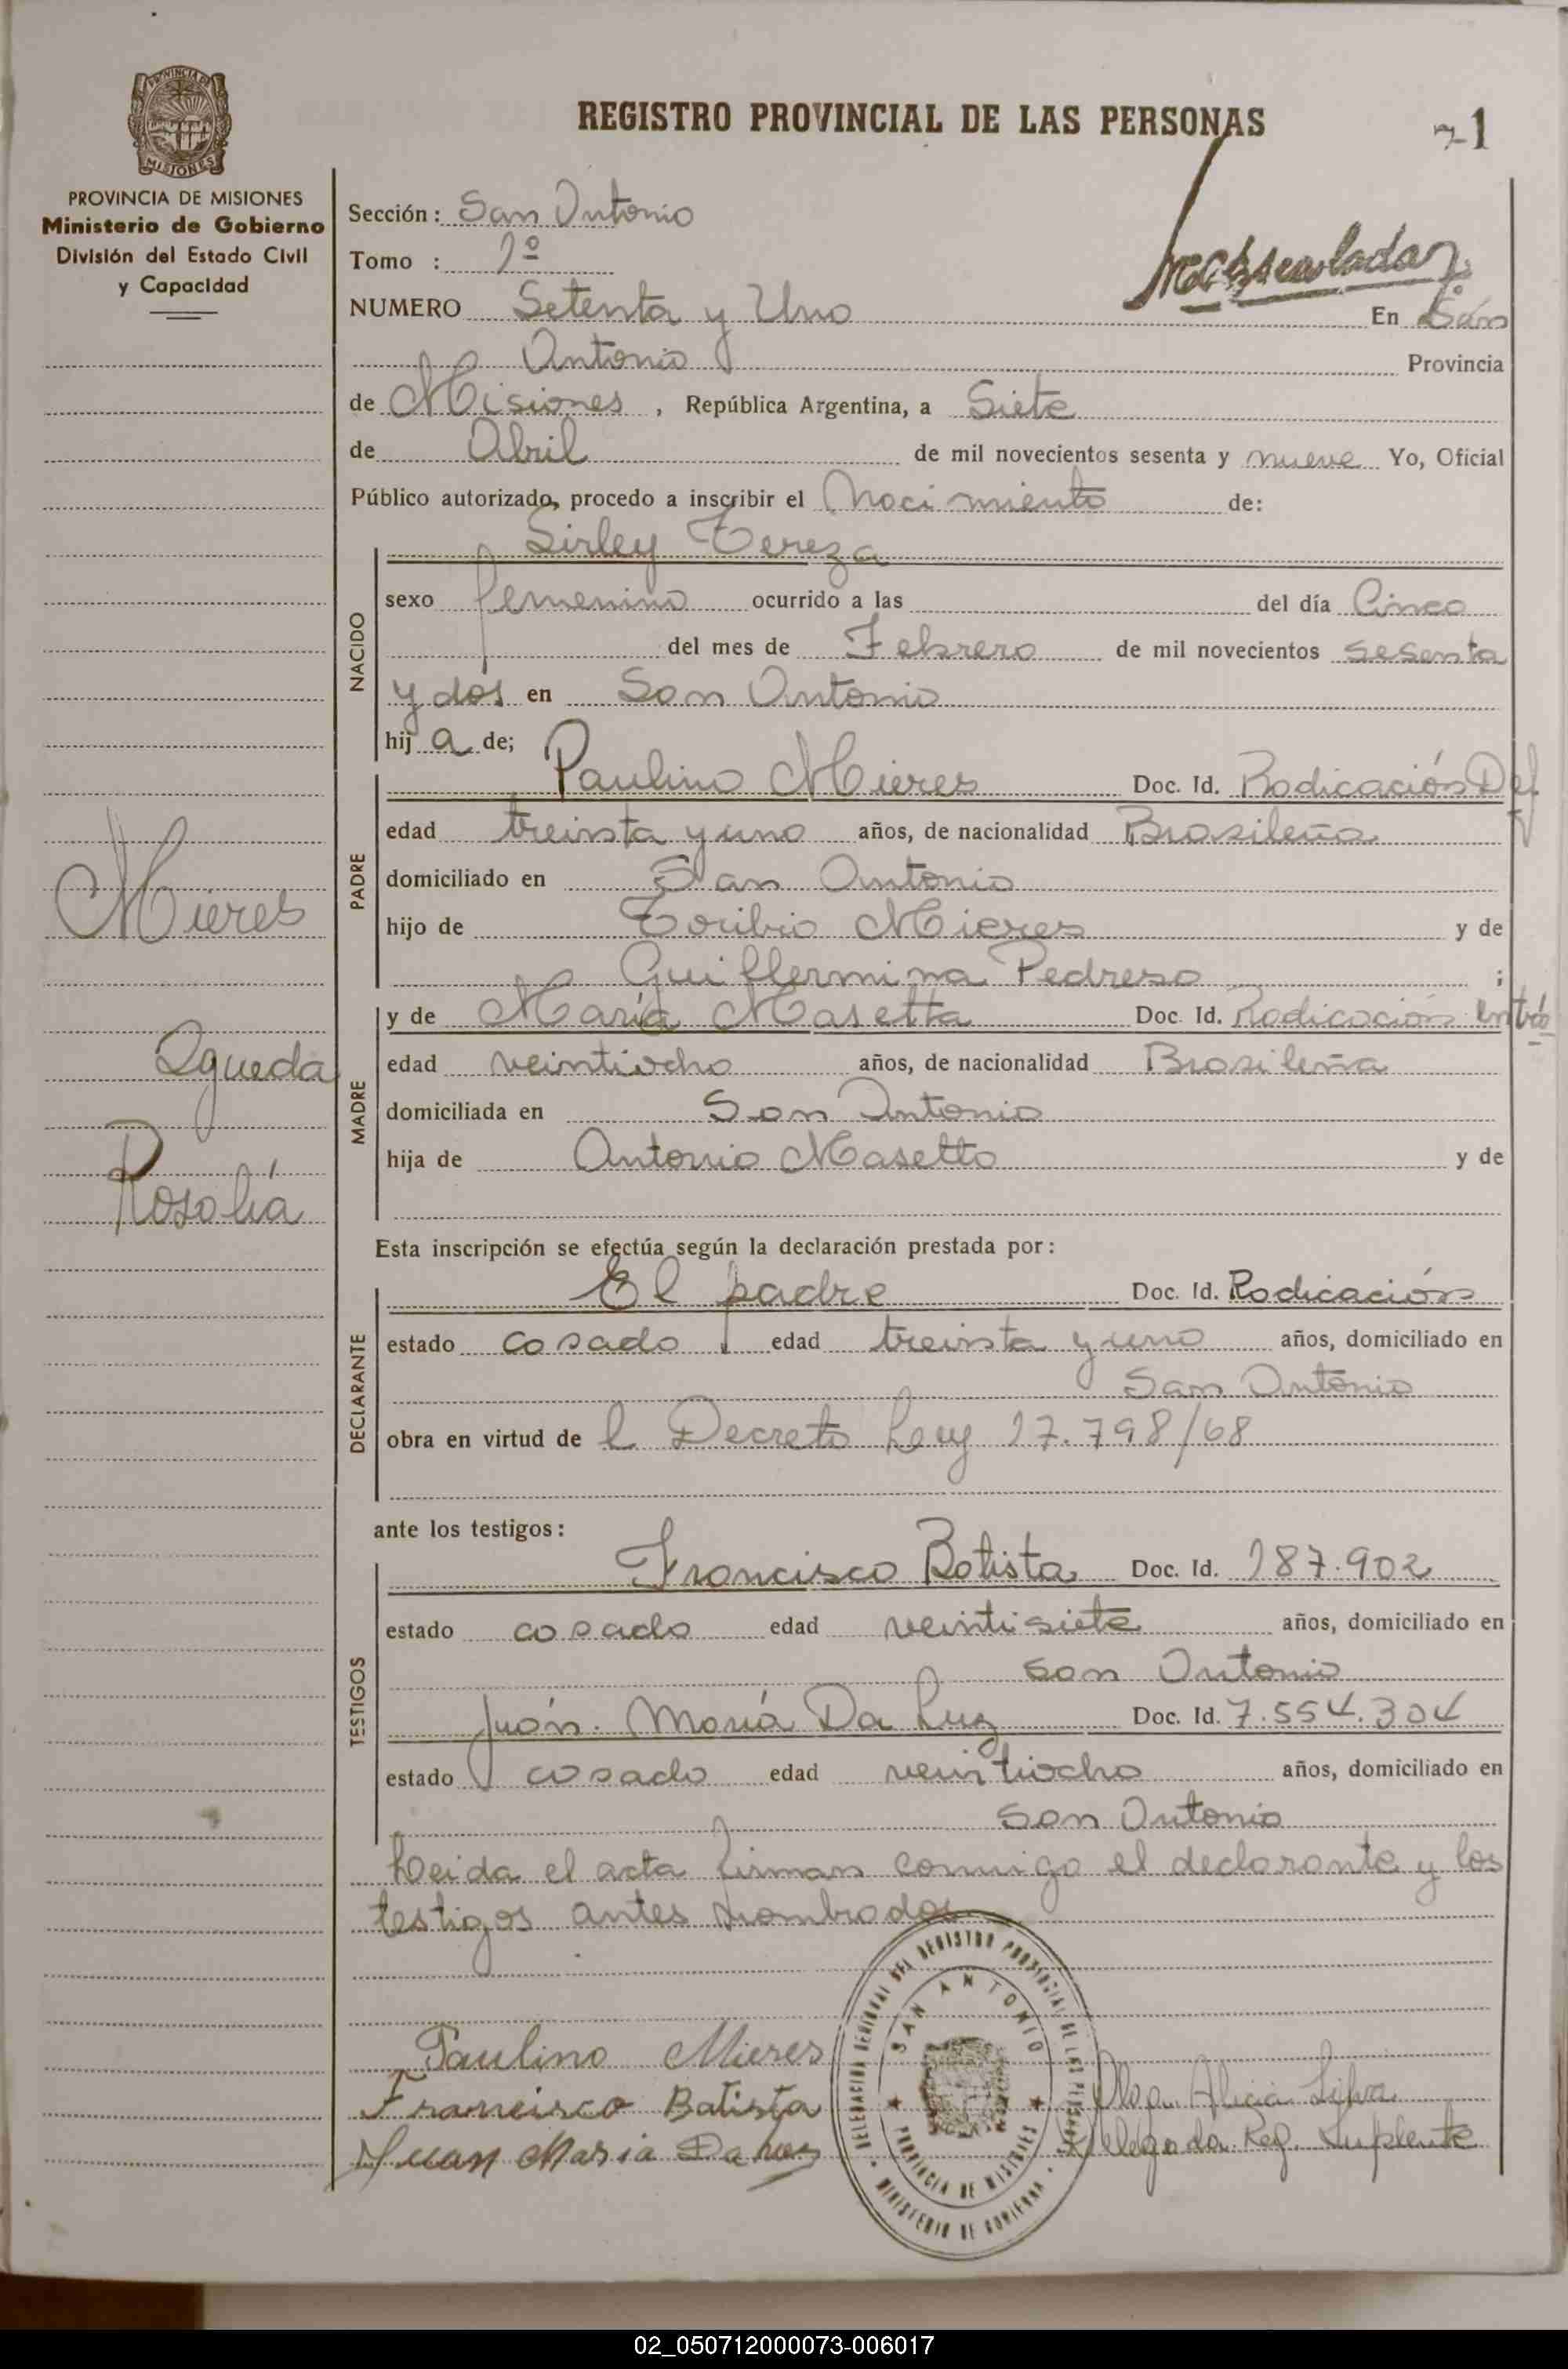 PROVINCIA DE MISIONES
REGISTRO PROVINCIAL DE LAS PERSONAS
71
PROVINCIA DE MISIONES
Ministerio de Gobierno
División del Estado Civil
y Capacidad
Sección: San Antonio
Tomo : 1º
NUMERO Setenta y Uno En San
Antonio Provincia
de Misiones, República Argentina, a Siete
de Abril de mil novecientos sesenta y nueve Yo, Oficial
Público autorizado, procedo a inscribir el Nacimiento de:
NACIDO
Sirley Tereza
sexo femenino ocurrido a las del día Cinco
del mes de Febrero de mil novecientos sesenta
y dos en San Antonio
hija de;
PADRE
Paulino Mieres Doc. Id. Radicación Def
edad treinta y uno años, de nacionalidad Brasileña
domiciliado en San Antonio
hijo de Toribio Mieres y de
Guillermina Pedroso ;
MADRE
y de María Masetta Doc. Id. Radicación
edad veintiocho años, de nacionalidad Brasileña
domiciliada en San Antonio
hija de Antonio Masetto y de
Mieres
Agueda
Rosalía
Esta inscripción se efectúa según la declaración prestada por:
DECLARANTE
El padre Doc. Id. Radicación
estado casado edad treinta y uno años, domiciliado en
San Antonio
obra en virtud de l Decreto Ley 17.798/68
ante los testigos:
TESTIGOS
Francisco Batista Doc. Id. 187.902
estado casado edad veintisiete años, domiciliado en
San Antonio
Juán María Da Luz Doc. Id. 7.554.304
estado casado edad veintiocho años, domiciliado en
San Antonio
Leida el acta firman conmigo el declarante y los
testigos antes nombrados
Paulino Mieres
Francisco Batista
Juan Maria Da Luz
DELEGACION REGIONAL DEL REGISTRO PROVINCIAL DE LAS PERSONAS
SAN ANTONIO
PROVINCIA DE MISIONES
MINISTERIO DE GOBIERNO
Olga Alicia Silva
Delegada Reg. Suplente
02_050712000073-006017